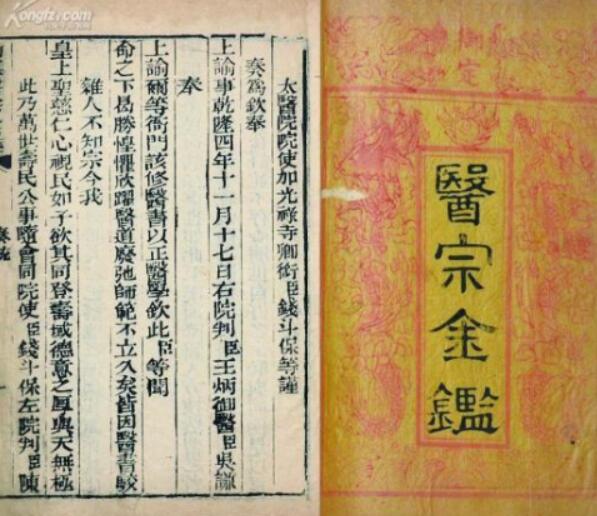 御定
醫宗金鑑
太醫院院使加光祿寺卿銜臣錢斗保等謹
奏爲欽奉
上諭事乾隆四年十一月十七日右院判臣王炳御醫臣吳謙
奉
上諭爾等衙門該修醫書以正醫學欽此臣等聞
命之下曷勝惶懼欣躍醫道廢弛師範不立久矣皆因醫書駁
雜人不知宗今我
皇上聖慈仁心視民如子欲其同登壽域德意之厚與天無極
此乃萬世壽民公事隨會同院使臣錢斗保左院判臣陳
Kongfz.com